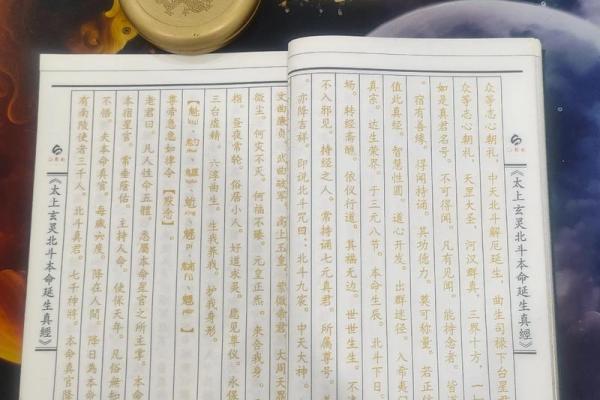 《太上玄灵北斗本命延生真經》
众等志心朝礼，中天北斗解厄延生，曲生司禄下台星君
众等志心朝礼，天罡大圣，河汉群真，三界十方，一
如是真君名号。不可得闻。凡有见闻。能持念者。皆道
宿有善缘。得闻持诵。其功德力。莫可称量。若正信
值此真经，智慧性圆。道心开发。出群迷径。入希夷门
真宗。达生荣界。于三元八节。本命生辰。北斗下日。
场。转经斋醮。依仪行道。其福无边。世世生生。不
不入邪见。持经之人。常持诵七元真君。所属尊号。善
亦降吉祥。即说北斗咒曰：北斗九宸。中天大神。
文曲廉贞。武曲破军。高上玉皇。紫微帝君。大周天界
微尘。何灾不灭。何福不臻。元皇正炁。来合我身。
指。昼夜常轮。俗居小人。好道求灵。愿见尊仪。永保
三台虚精。六淳曲生。生我养我。护我身形。
尊帝急急如律令【默念】。
老君曰。凡人性命五體。悉屬本命星官之所主掌。本命
本宿星官。常垂蔭佑。主持人命。使保天年。凡俗無知
不悟。夫本命真官。每歲六度。降在人間。降日為本命
有南陵使者三千人。北斗真君。七千神將。本命真官降
《太上玄灵北斗本命延生真經》